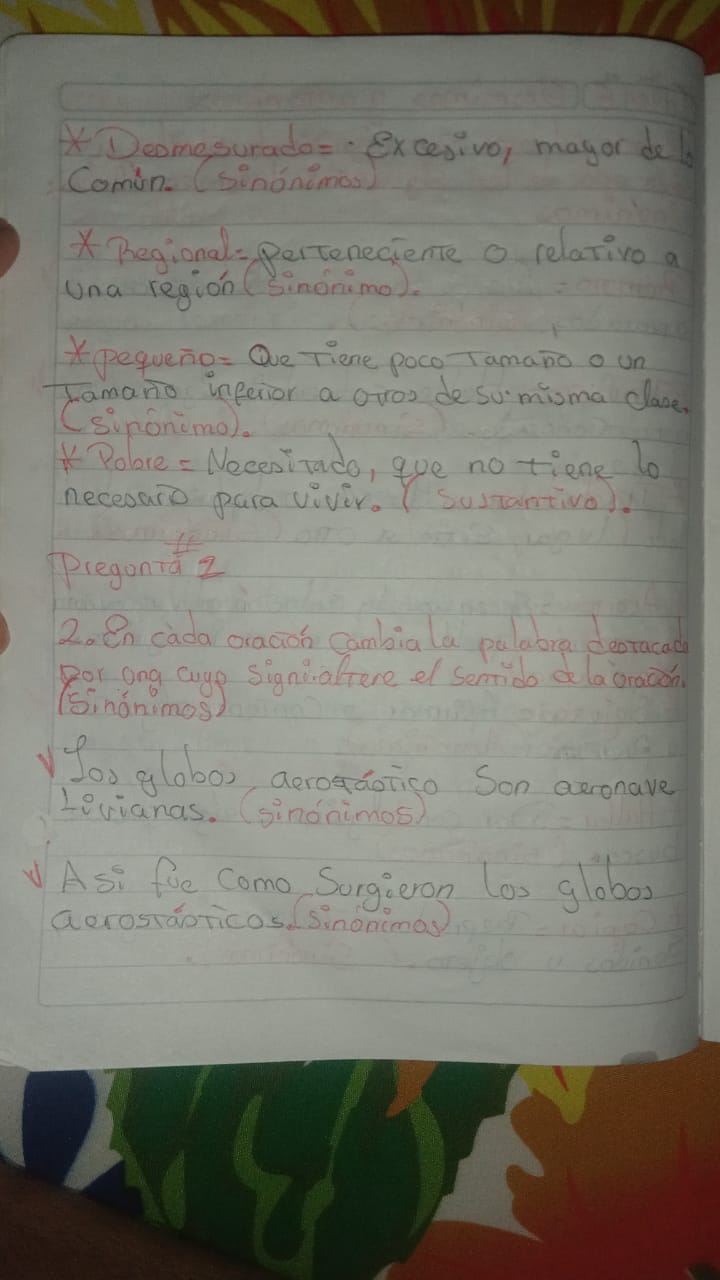 * Desmesurado= · Excesivo, mayor de lo
Común. (Sinónimos)
* Regional= perteneciente o relativo a
una región (sinónimo).
* pequeño= Que Tiene poco Tamaño o un
Tamaño inferior a otros de su misma clase.
(sinónimo).
* Pobre = Necesitado, que no tiene lo
necesario para vivir. (Sustantivo).
Pregunta # 2
2. En cada oración Cambia la palabra destacada
por una cuyo signi altere el sentido de la oración.
(Sinónimos)
Los globos aerostástico Son aeronave
Livianas. (sinónimos)
Asi fue Como Surgieron los globos
aerostásticos. (sinónimos)